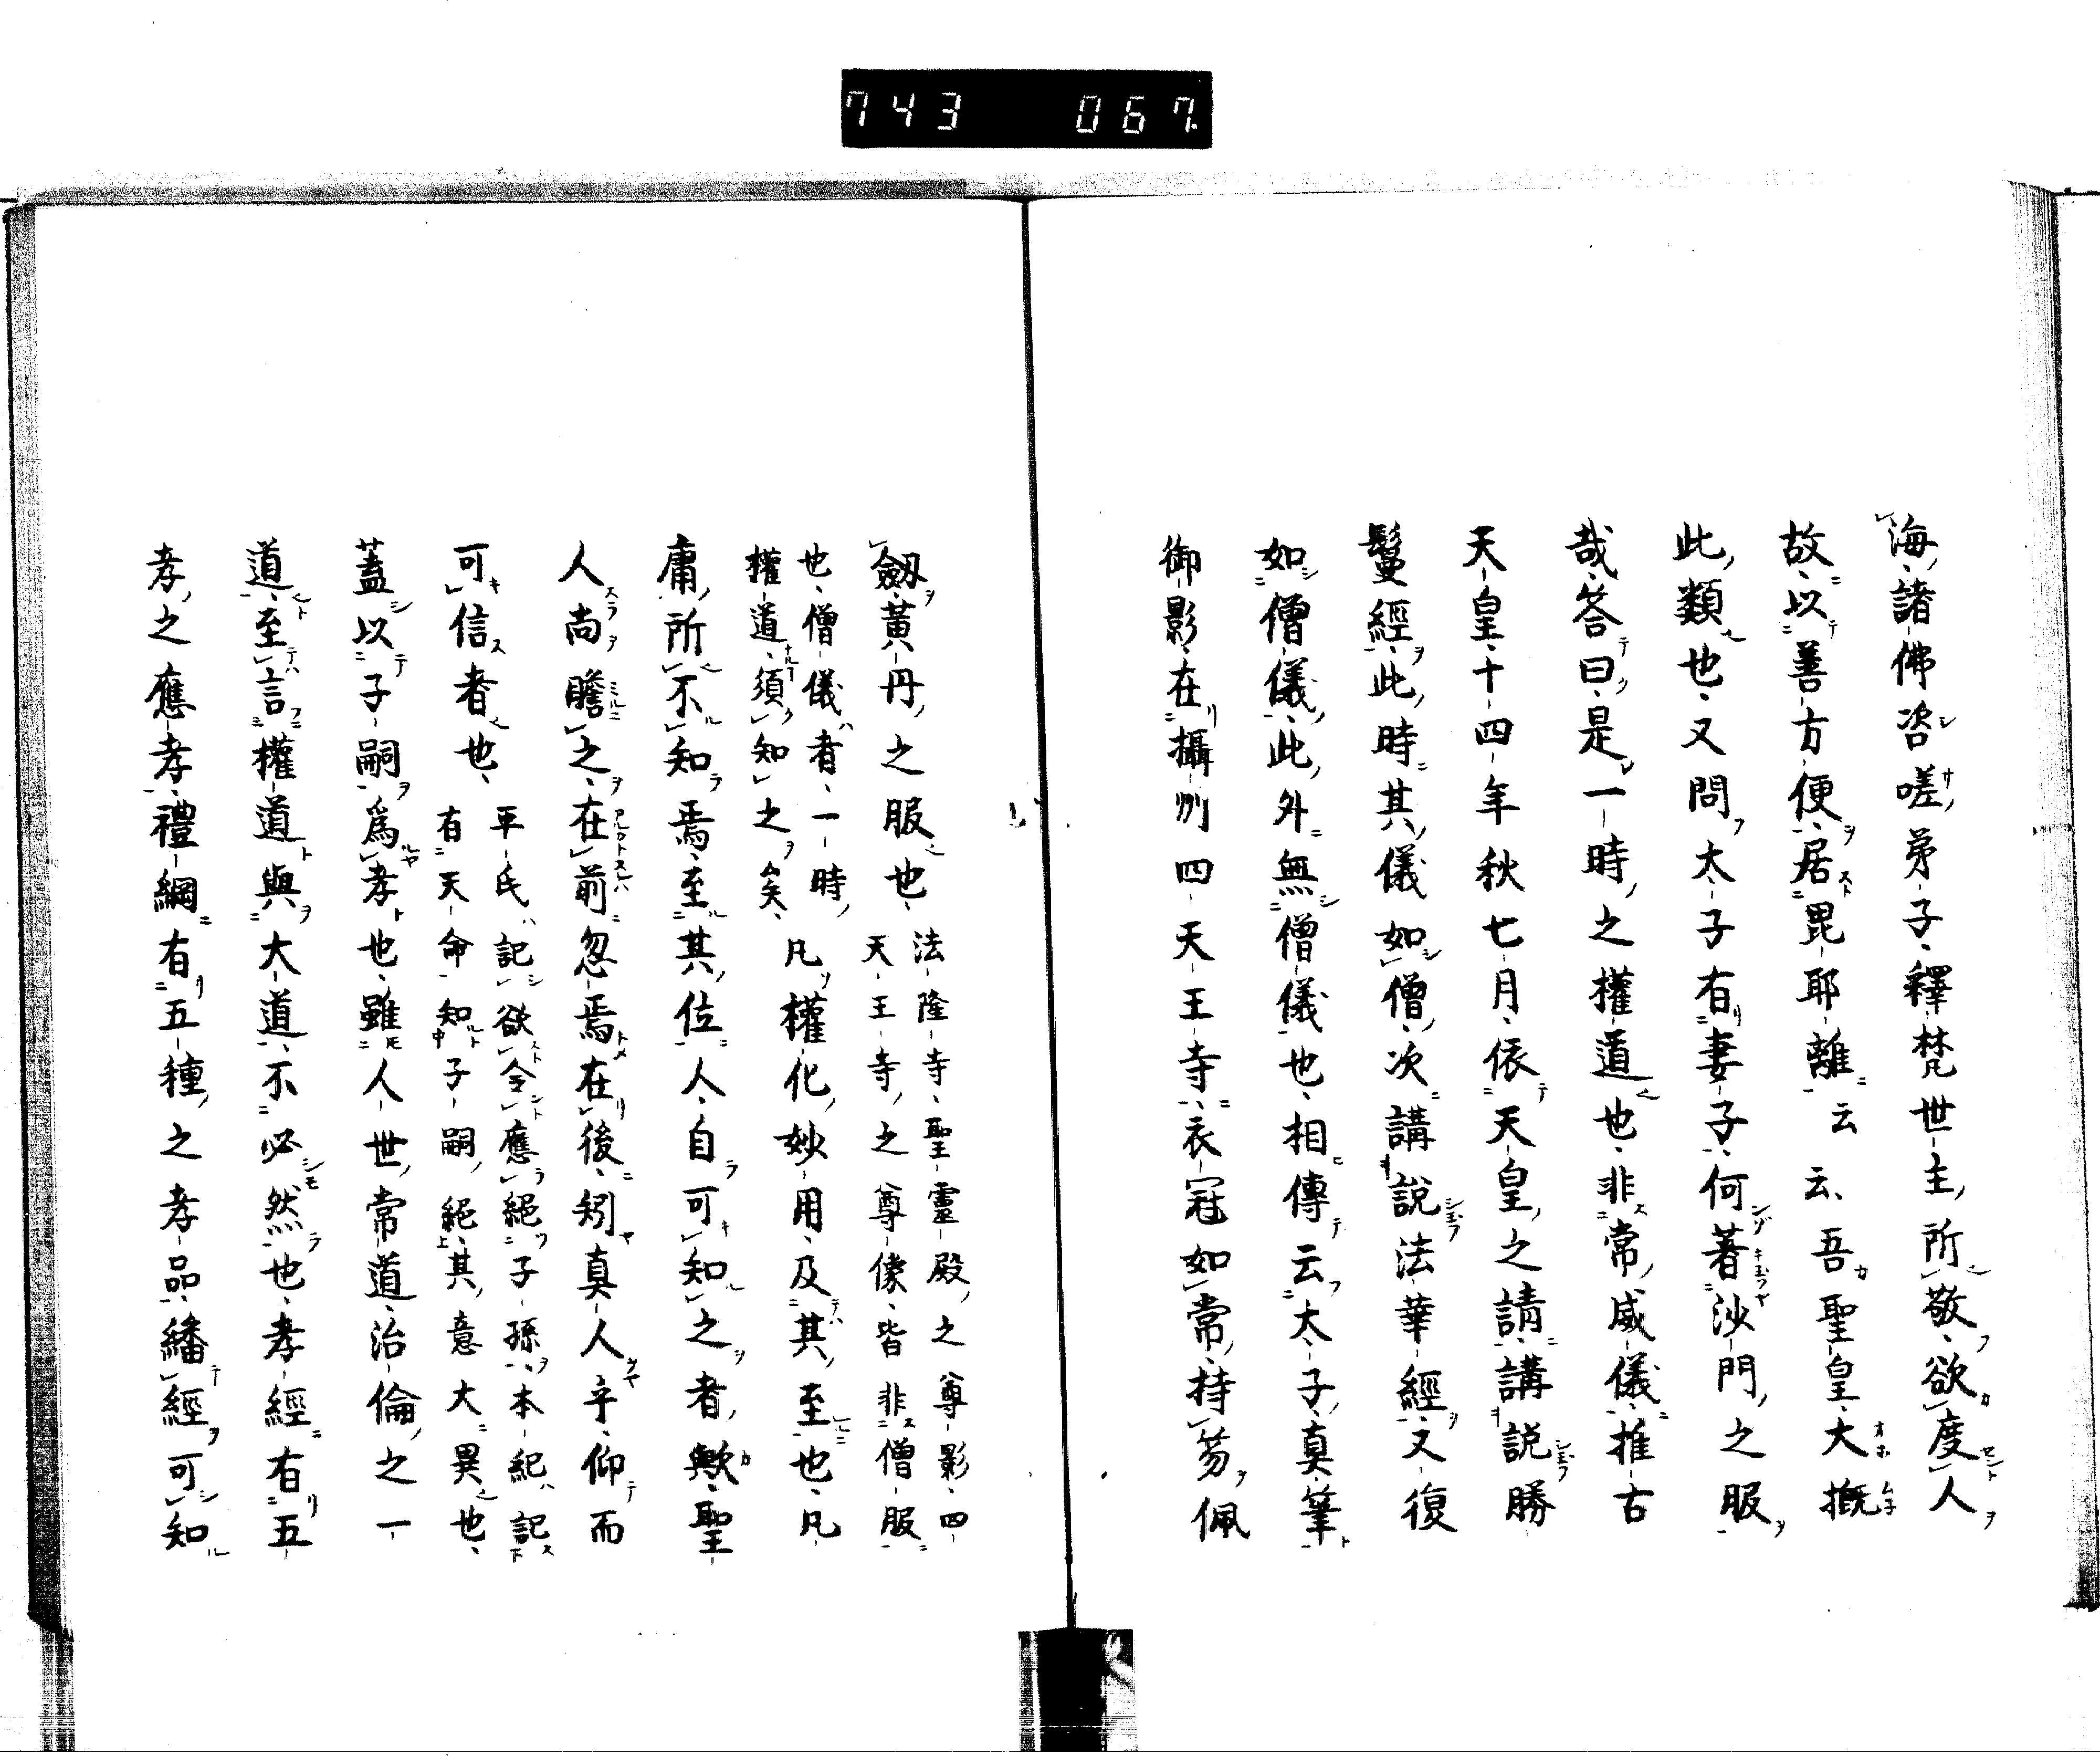 743 067
海、諸佛咨嗟、弟子、釋梵世主、所敬、欲度人
故、以善方便、居毘耶離云云、吾聖皇、大槪
此類也、又問、太子有妻子、何著沙門之服
哉、答曰、是一時之權道也、非常威儀、推古
天皇十四年秋七月、依天皇之請、講説勝
鬘經、此時其儀如僧、次講説法華經、又復
如僧儀、此外無僧儀也、相傳云、太子真筆
御影、在攝州四天王寺、衣冠如常、持笏佩
劔、黃丹之服也、法隆寺、聖靈殿之尊影、四
天王寺之尊像、皆非僧服
也、僧儀者、一時
權道、須知之矣、凡權化妙用、及其至也、凡
庸所不知焉、至其位人、自可知之者歟、聖
人尚瞻之在前、忽焉在後、矧真人乎、仰而
可信者也、平氏記、欲令應絕子孫、本紀記
有天命、知子嗣絕、其意大異也、
蓋以子嗣爲孝也、雖人世常道、治倫之一
道、至言權道與大道、不必然也、孝經有五
孝之應、孝禮綱有五種之孝品、繙經可知